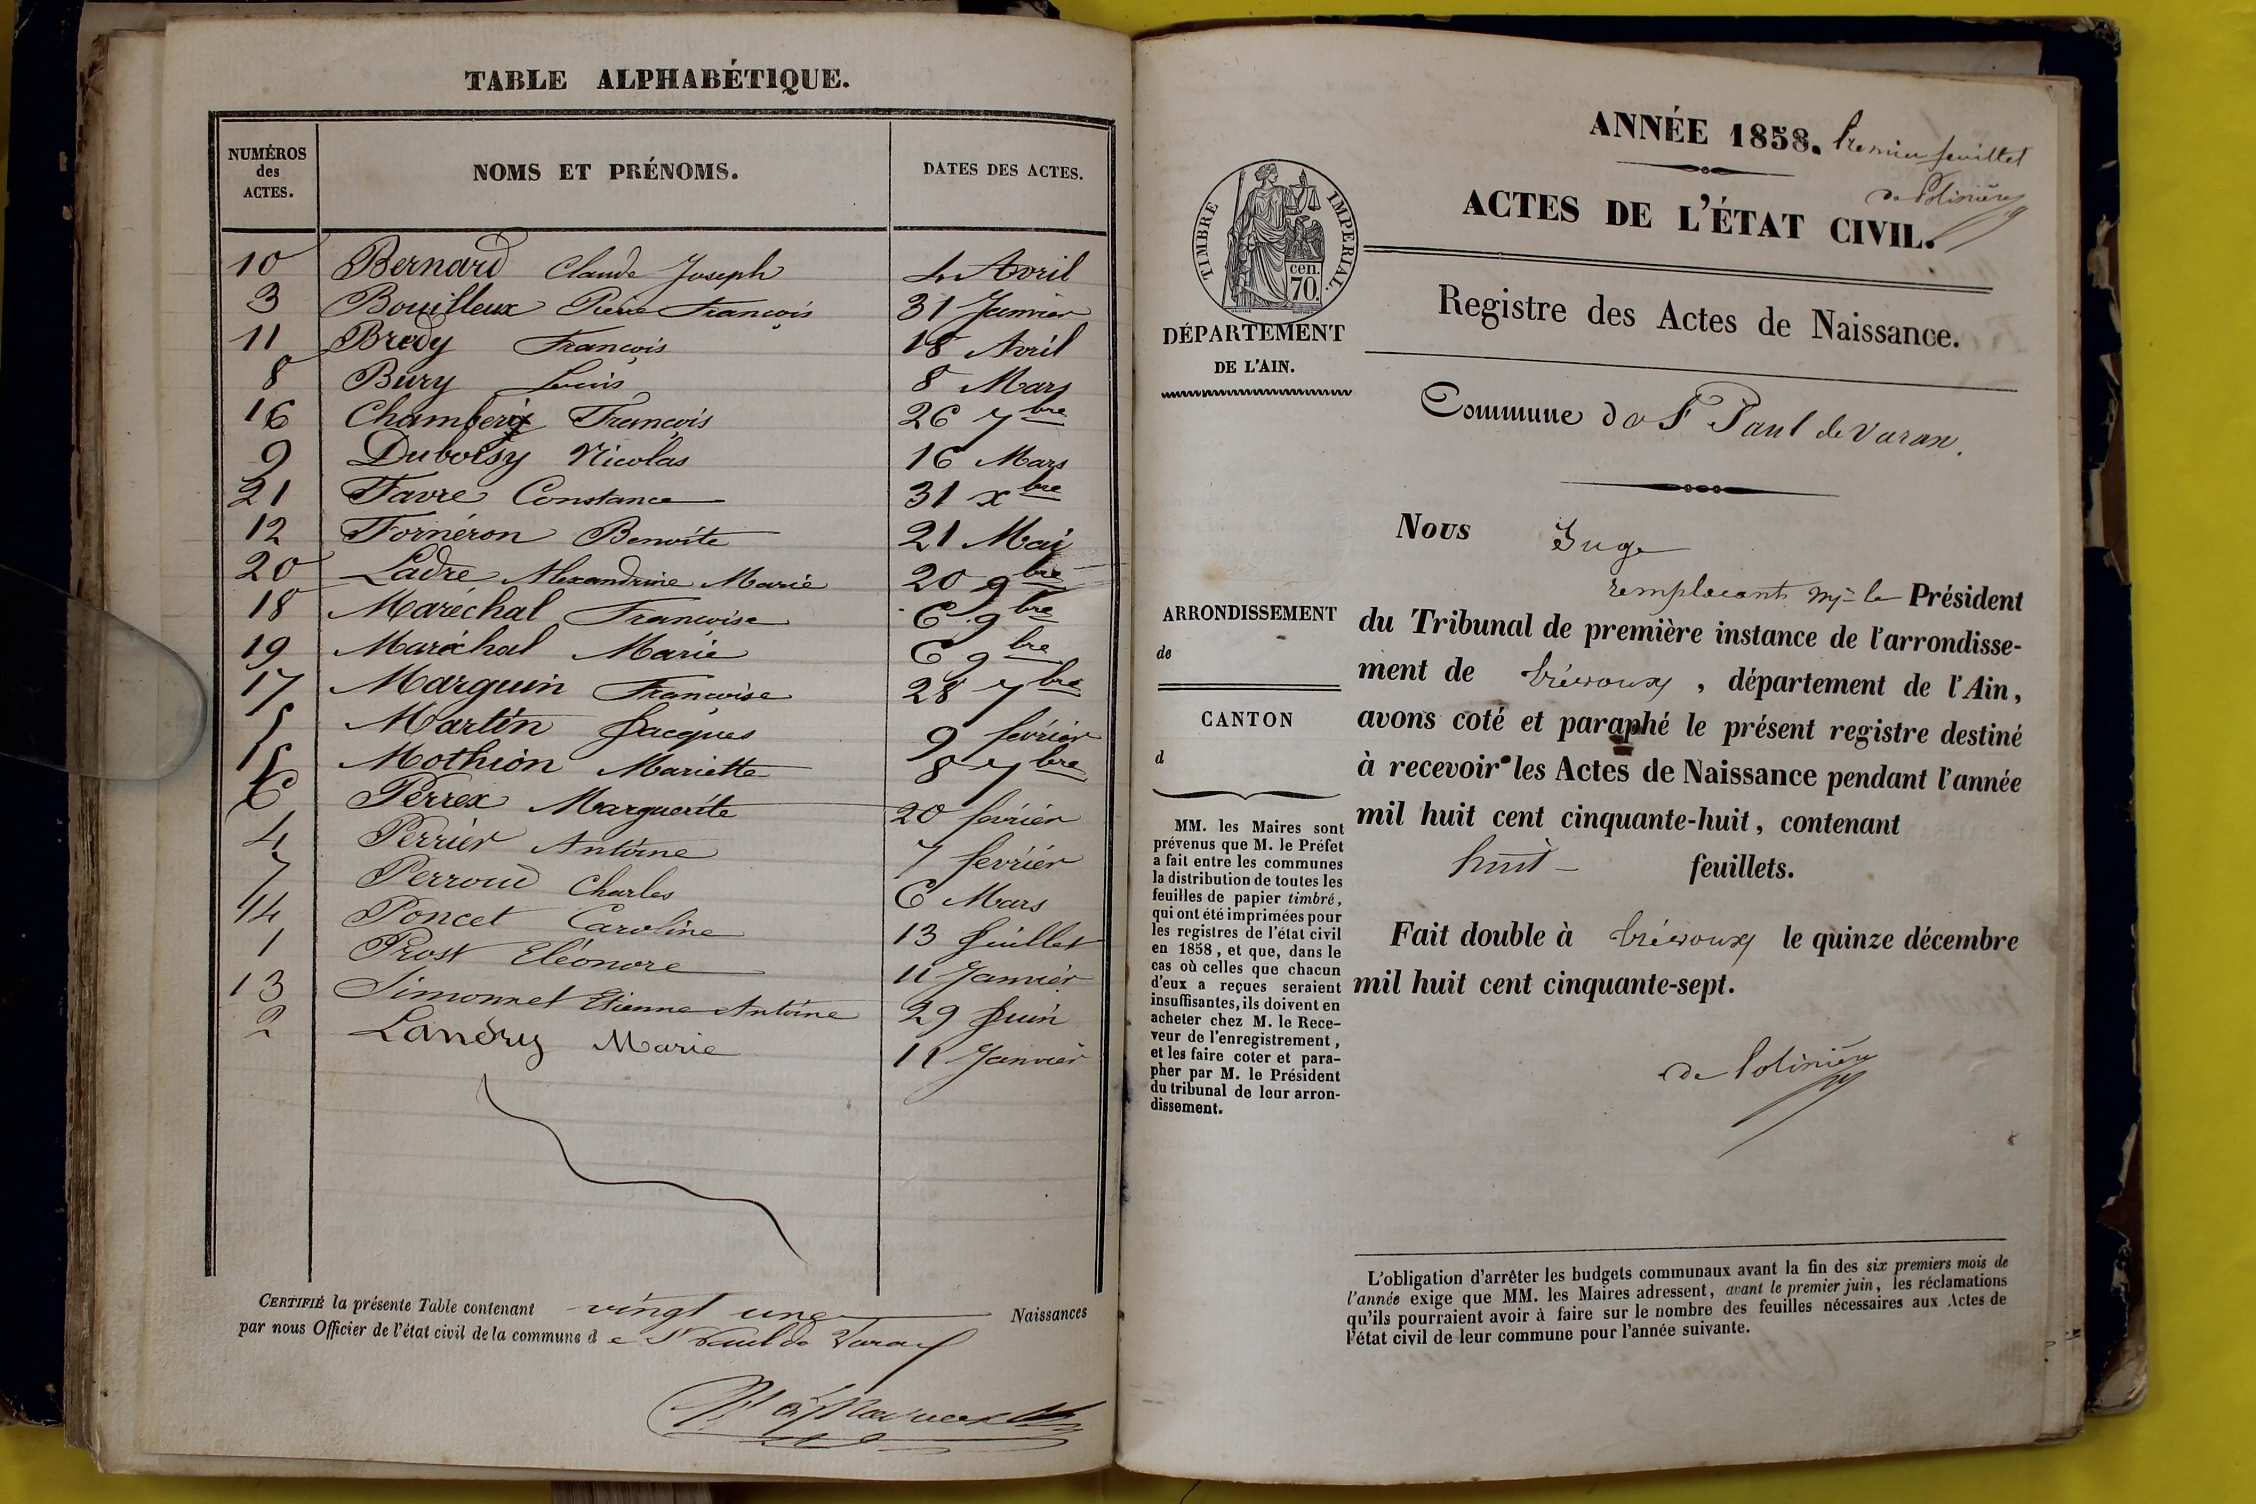 TABLE ALPHABÉTIQUE.
NUMÉROS des ACTES. NOMS ET PRÉNOMS. DATES DES ACTES.
10 Bernard Claude Joseph 4 Avril
3 Bouilleux Pierre François 31 Janvier
11 Bredy François 18 Avril
8 Bury Louis 8 Mars
16 Chambery François 26 7bre
9 Duboisy Nicolas 16 Mars
21 Favre Constance 31 xbre
12 Fornéron Benoîte 21 Mai
20 Ladre Alexandrine Marie 20 9bre
18 Maréchal Françoise 6 9bre
19 Maréchal Marie 6 9bre
17 Marguin Françoise 28 7bre
5 Martin Jacques 9 février
15 Mothion Mariette 8 7bre
6 Perrex Marguerite 20 février
4 Perrier Antoine 7 février
7 Perroud Charles 6 Mars
14 Poncet Caroline 13 Juillet
1 Prost Eléonore 11 Janvier
13 Simonnet Etienne Antoine 29 Juin
2 Landry Marie 11 Janvier
CERTIFIÉ la présente Table contenant vingt une Naissances
par nous Officier de l'état civil de la commune d e St Paul de Varax
ANNÉE 1858. Premier feuillet
de Polinière
ACTES DE L'ÉTAT CIVIL.
TIMBRE IMPERIAL.
cen.
70.
DÉPARTEMENT
DE L'AIN.
Registre des Actes de Naissance.
Commune de St Paul de Varax.
Nous Juge
remplacant Mr le Président
du Tribunal de première instance de l'arrondisse-
ment de Trévoux, département de l'Ain,
avons coté et paraphé le présent registre destiné
à recevoir les Actes de Naissance pendant l'année
mil huit cent cinquante-huit, contenant
huit feuillets.
Fait double à Trévoux le quinze décembre
mil huit cent cinquante-sept.
de Polinière
ARRONDISSEMENT
de
CANTON
d
MM. les Maires sont
prévenus que M. le Préfet
a fait entre les communes
la distribution de toutes les
feuilles de papier timbré,
qui ont été imprimées pour
les registres de l'état civil
en 1858, et que, dans le
cas où celles que chacun
d'eux a reçues seraient
insuffisantes, ils doivent en
acheter chez M. le Rece-
veur de l'enregistrement,
et les faire coter et para-
pher par M. le Président
du tribunal de leur arron-
dissement.
L'obligation d'arrêter les budgets communaux avant la fin des six premiers mois de
l'année exige que MM. les Maires adressent, avant le premier juin, les réclamations
qu'ils pourraient avoir à faire sur le nombre des feuilles nécessaires aux Actes de
l'état civil de leur commune pour l'année suivante.